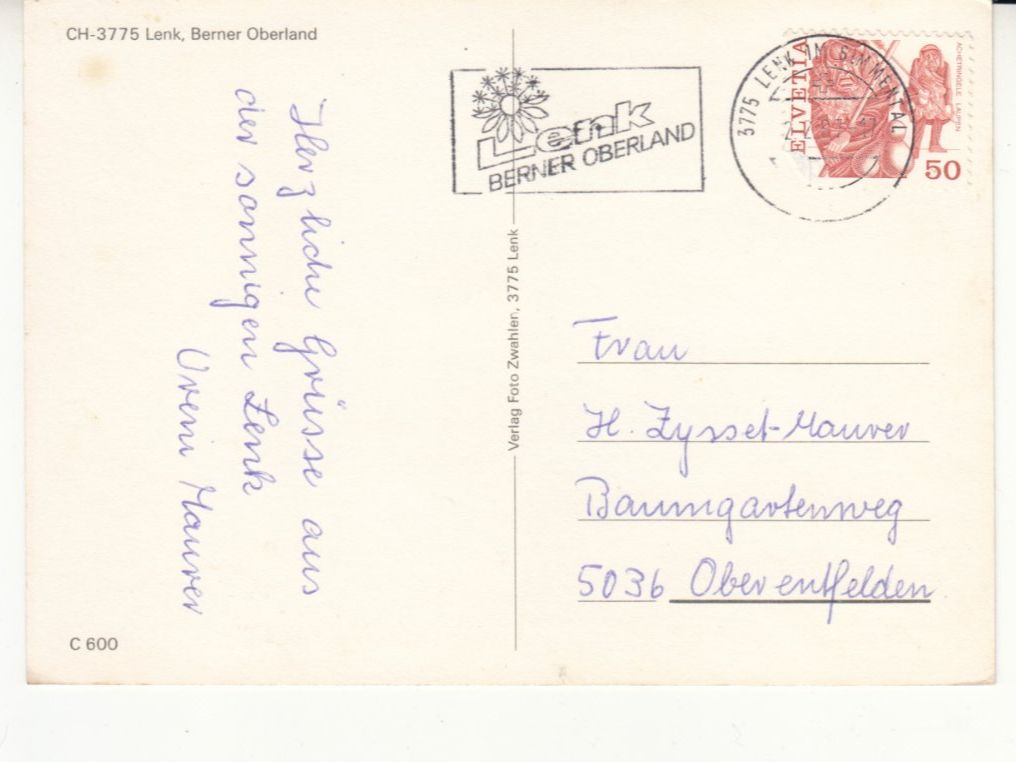 CH-3775 Lenk, Berner Oberland
Herzliche Grüsse aus
der sonnigen Lenk
Vreni Maurer
C 600
Verlag Foto Zwahlen, 3775 Lenk
Lenk
BERNER OBERLAND
3775 LENK IM SIMMENTAL
HELVETIA
ACHETRINGELE LAUPEN
50
Frau
H. Zysset-Maurer
Baumgartenweg
5036 Oberentfelden